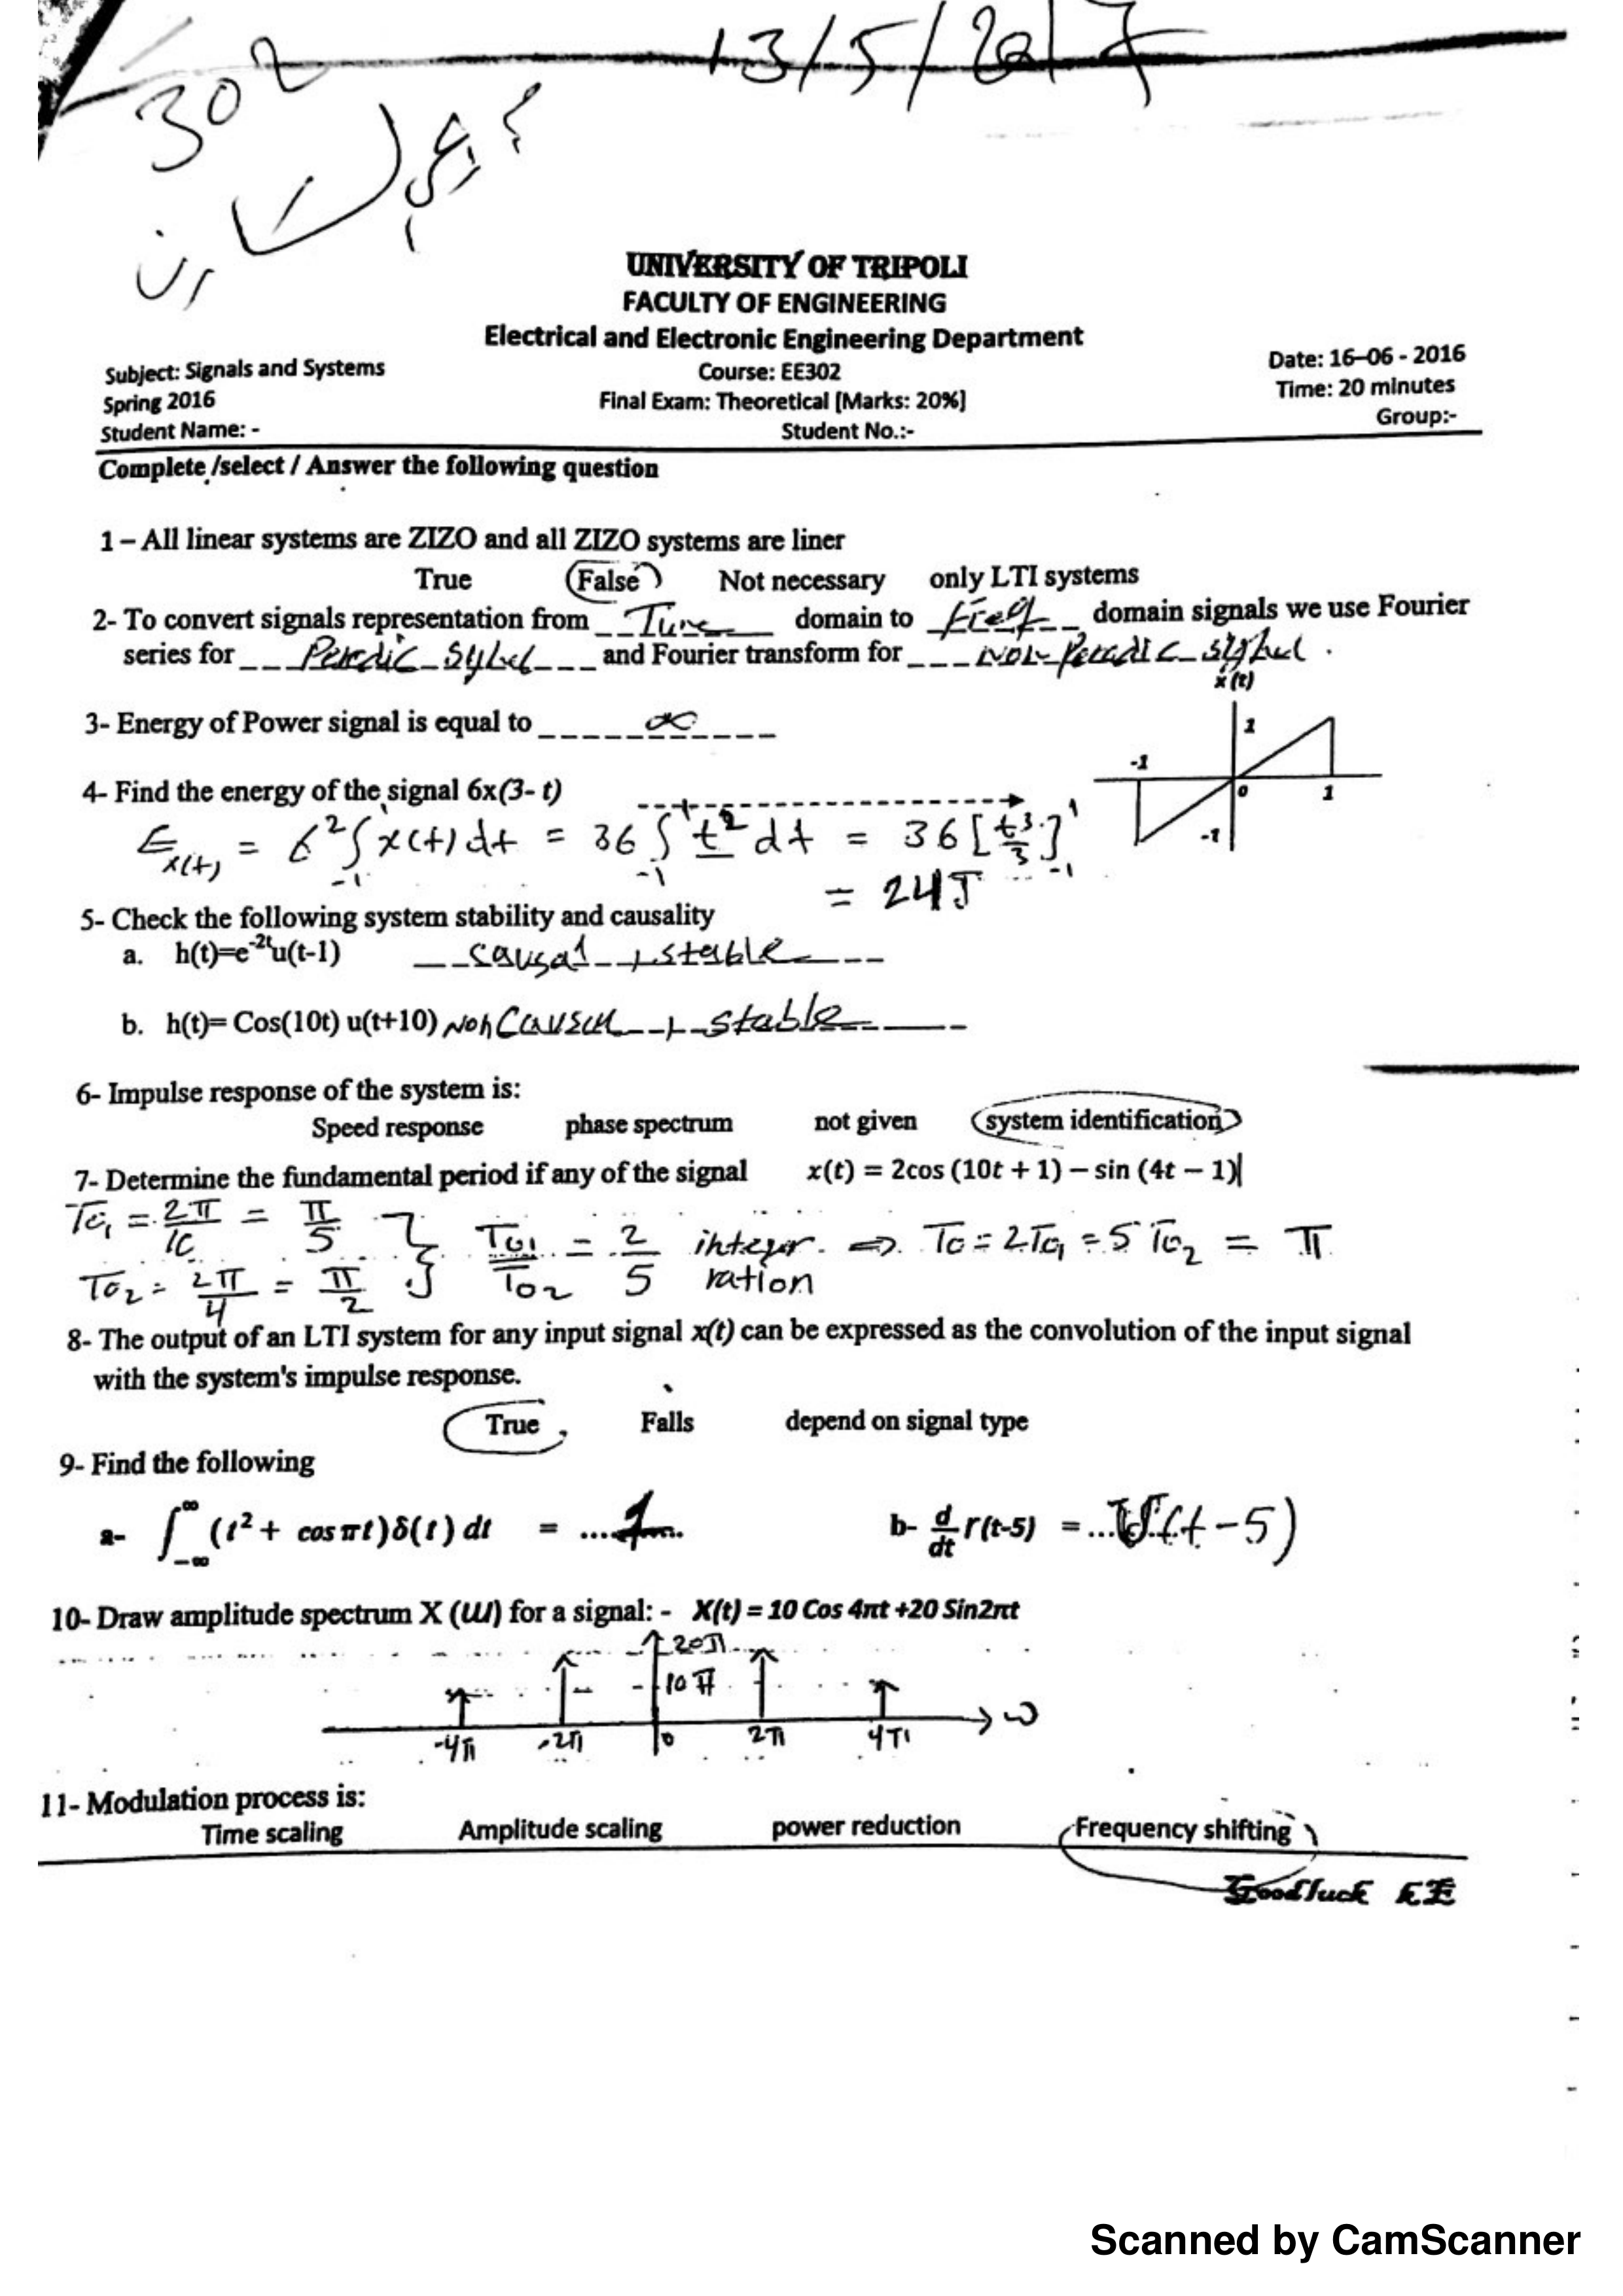 13/5/2017
302
UNIVERSITY OF TRIPOLI
FACULTY OF ENGINEERING
Electrical and Electronic Engineering Department
Subject: Signals and Systems Course: EE302 Date: 16-06 - 2016
Spring 2016 Final Exam: Theoretical [Marks: 20%] Time: 20 minutes
Student Name: - Student No.:- Group:-
Complete /select / Answer the following question
1 – All linear systems are ZIZO and all ZIZO systems are liner
True False Not necessary only LTI systems
2- To convert signals representation from Time domain to Freq domain signals we use Fourier
series for and Fourier transform for
x(t)
3- Energy of Power signal is equal to ∞
1
-1
0 1
-1
4- Find the energy of the signal 6x(3- t)
E x(t) = 6² ∫ x(t) dt = 36 ∫ t² dt = 36 [t³/3]
-1 -1 -1
1 1
= 24 J
5- Check the following system stability and causality
a. h(t)=e⁻²ᵗu(t-1) causal + stable
b. h(t)= Cos(10t) u(t+10) Non Causal + stable
6- Impulse response of the system is:
Speed response phase spectrum not given system identification
7- Determine the fundamental period if any of the signal x(t) = 2cos (10t + 1) – sin (4t – 1)
To₁ = 2π/10 = π/5 } To1/To2 = 2/5 integer ⇒ To = 2To₁ = 5To₂ = π
To₂ = 2π/4 = π/2 ration
8- The output of an LTI system for any input signal x(t) can be expressed as the convolution of the input signal
with the system's impulse response.
True Falls depend on signal type
9- Find the following
a- ∫_{-∞}^{∞} (t² + cos πt)δ(t) dt = ....1.... b- d/dt r(t-5) = ...U(t-5)
10- Draw amplitude spectrum X (ω) for a signal: - X(t) = 10 Cos 4πt +20 Sin2πt
20π
10π
ω
-4π -2π 0 2π 4π
11- Modulation process is:
Time scaling Amplitude scaling power reduction Frequency shifting
Goodluck
Scanned by CamScanner